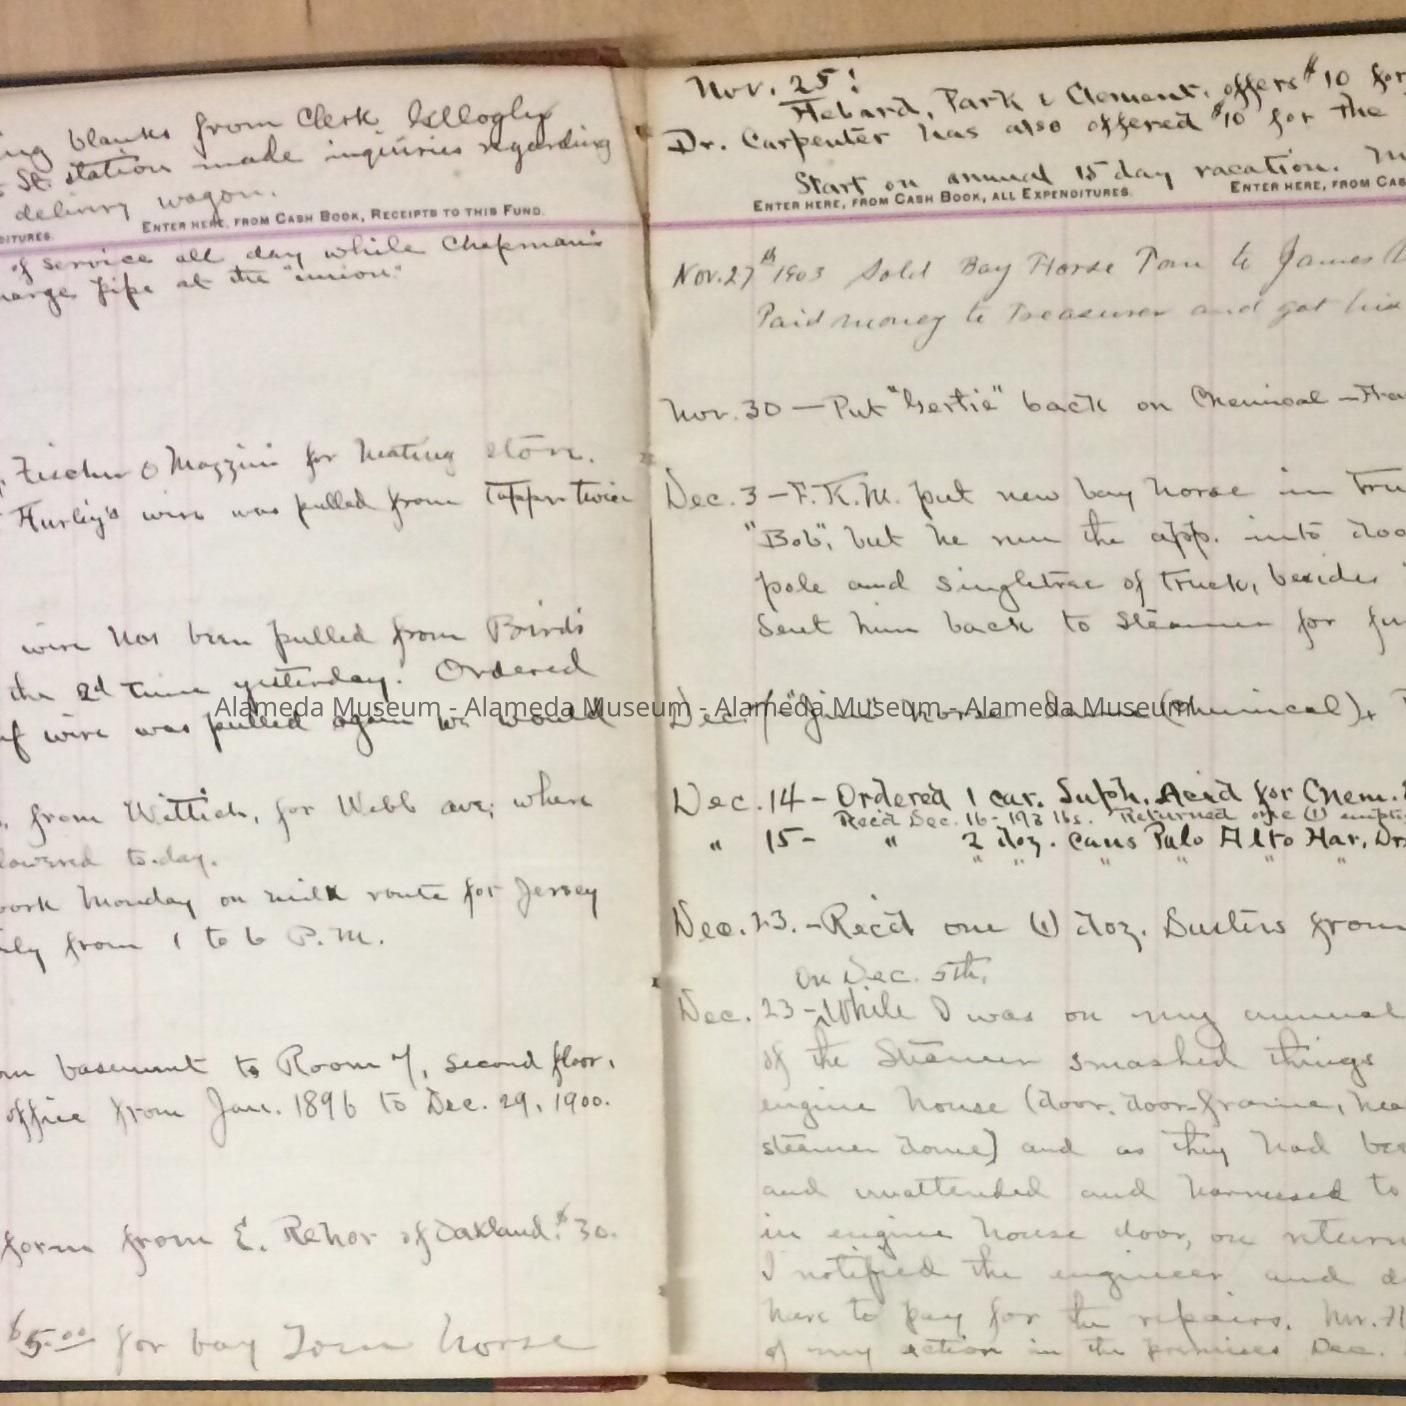 ing blanks from Clerk Gilloghy
St. station made inquiries regarding
delivery wagon.
DITURES. ENTER HERE, FROM CASH BOOK, RECEIPTS TO THIS FUND.
of service all day while Chapman's
harge pipe at the "union."
Fischer & Mazzini for heating stove.
Hurley's wire was pulled from tapper twice
wire has been pulled from Bird's
the 2d time yesterday. Ordered
if wire was pulled again we would
from Wittich, for Webb ave; where
lowered to-day.
work Monday on milk route for Jersey
ily from 1 to 6 P.M.
om basement to Room 7, second floor,
office from Jan. 1896 to Dec. 29, 1900.
form from E. Rehor of Oakland. $30.
$5.00 for bay Tom horse
Nov. 25:
Hebard, Park & Clement, offers $10 for
Dr. Carpenter has also offered $10 for the
Start on annual 15 day vacation.
ENTER HERE, FROM CASH BOOK, ALL EXPENDITURES. ENTER HERE, FROM CAS
Nov. 27th 1903 Sold Bay Horse Tom to James
Paid money to Treasurer and got his
Nov. 30 — Put "Gertie" back on Chemical —
Dec. 3 — F.K.M. put new bay horse in tru
"Bob", but he run the app. into doo
pole and singletree of truck, besides
Sent him back to Steamer for fu
Dec. 7 "Jim" horse lame (Chemical),
Alameda Museum - Alameda Museum - Alameda Museum - Alameda Museum
Dec. 14 - Ordered 1 car. Sulph. Acid for Chem.
Rec'd Dec. 16 - 193 lbs. Returned one (1) empty
" 15 - " 2 doz. cans Palo Alto Har. Dr
Dec. 23. - Rec'd one (1) doz. Dusters from
On Dec. 5th,
Dec. 23 - While I was on my annual
of the Steamer smashed things
engine house (door, door-frame, hea
steamer dome) and as they had bee
and unattended and harnessed to
in engine house door, on return
I notified the engineer and d
have to pay for the repairs. Mr. H
of my action in the premises Dec.